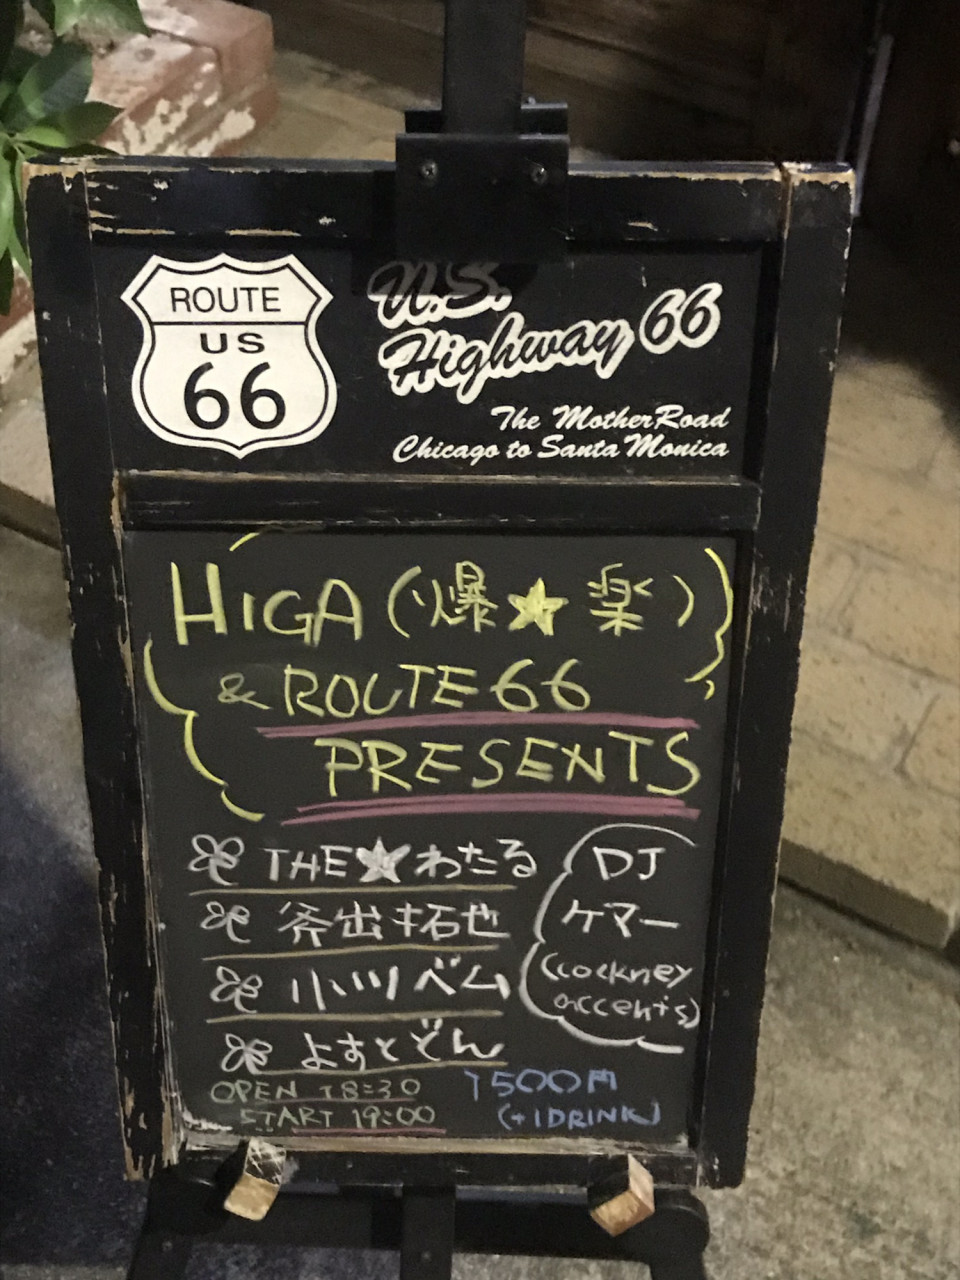 ROUTE
US
66
U.S.
Highway 66
The Mother Road
Chicago to Santa Monica
HIGA (爆★楽)
& ROUTE 66
PRESENTS
THE★わたる
斧出拓也
小川ベム
よすとどん
DJ
ケマー
(cockney
accents)
OPEN 18:30
START 19:00
1500円
(+1DRINK)